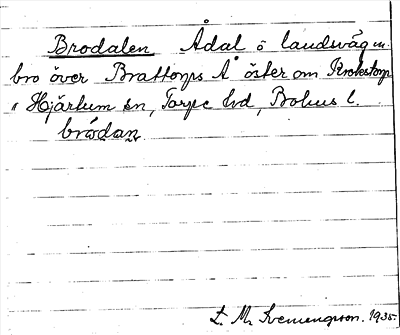 Brodalen Ådal o landsväg m.
bro över Brattorps Å öster om Krokestorp
i Hjärtum sn, Torpe hd, Bohus l.
brōdan
L. M. Svenungsson. 1935.